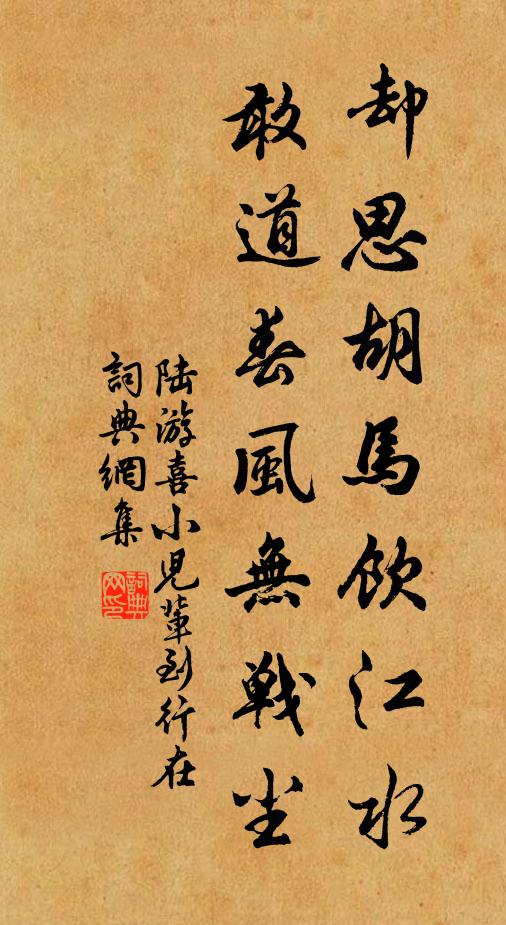 却思胡馬飲江水
敢道春風無戰尘
陆游喜小兒輩到行在
詞典網集
詞典网印